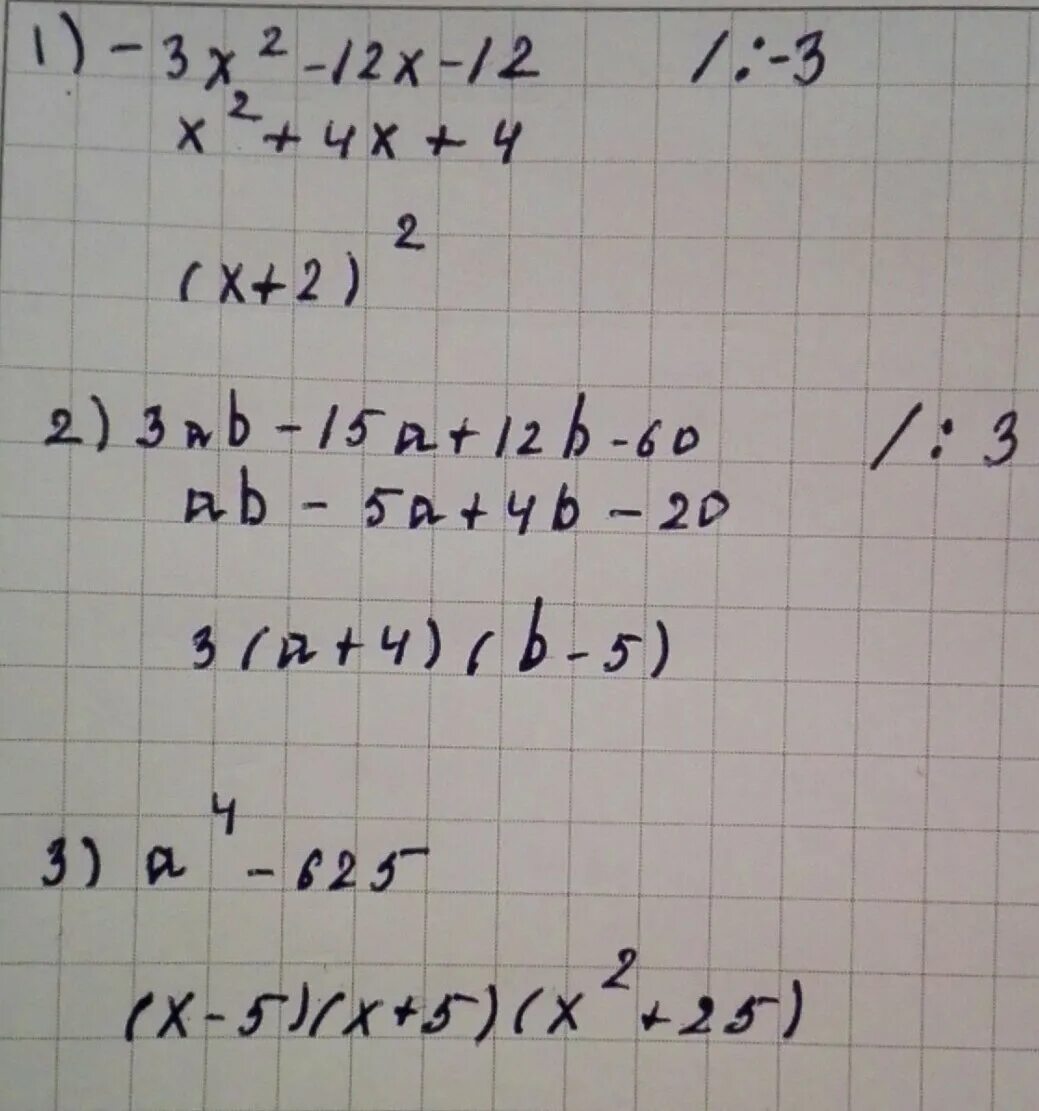 1) -3x² -12x -12 /:-3
x² + 4x + 4
(x+2)²
2) 3ab -15a+12b -60 /: 3
ab - 5a+4b - 20
3(a+4)(b-5)
3) a⁴ - 625
(x-5)(x+5)(x² +25)